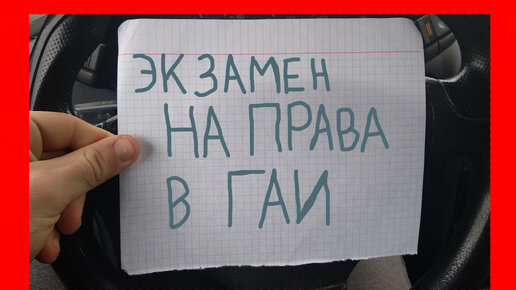 ЭКЗАМЕН
НА ПРАВА
В ГАИ